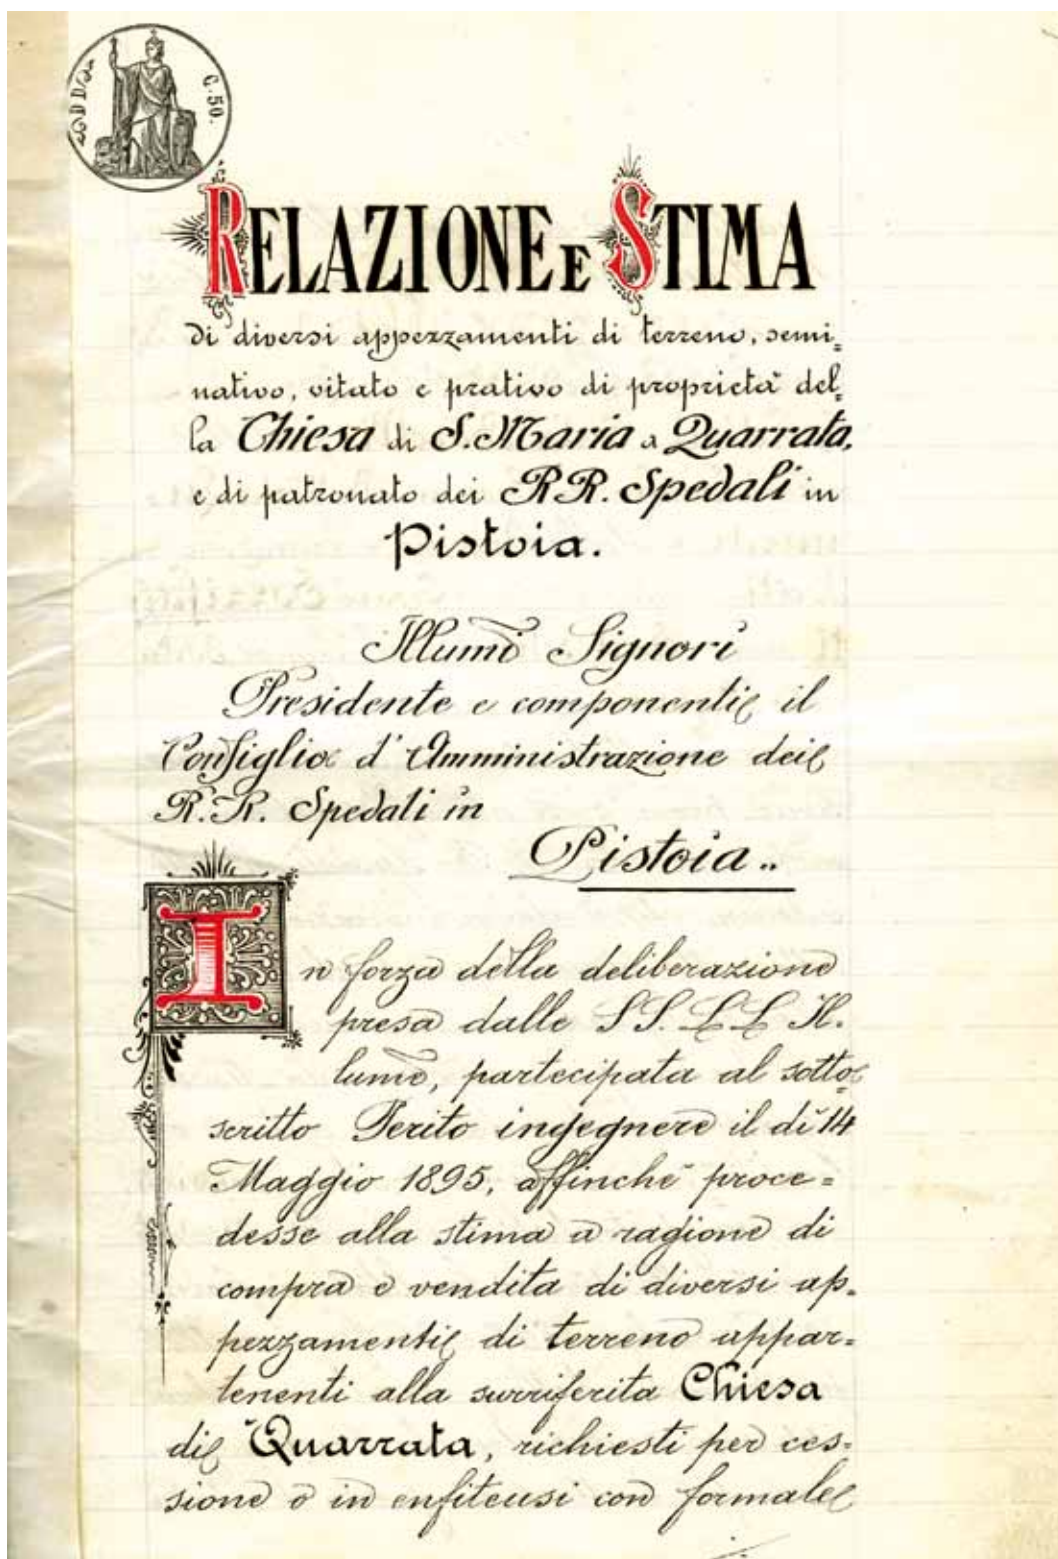 C. 50.
RELAZIONE E STIMA
di diversi appezzamenti di terreno, semi=
nativo, vitato e prativo di proprietà del=
la Chiesa di S. Maria a Quarrata,
e di patronato dei RR. Spedali in
Pistoia.
Illumi Signori
Presidente e componenti il
Consiglio d'Amministrazione dei
R.R. Spedali in
Pistoia..
In forza della deliberazione
presa dalle SS. LL Il.
lume, partecipata al sotto=
scritto Perito ingegnere il dì 14
Maggio 1895, affinché proce=
desse alla stima a ragione di
compra e vendita di diversi ap=
pezzamenti di terreno appar=
tenenti alla surriferita Chiesa
di Quarrata, richiesti per ces=
sione o in enfiteusi con formale